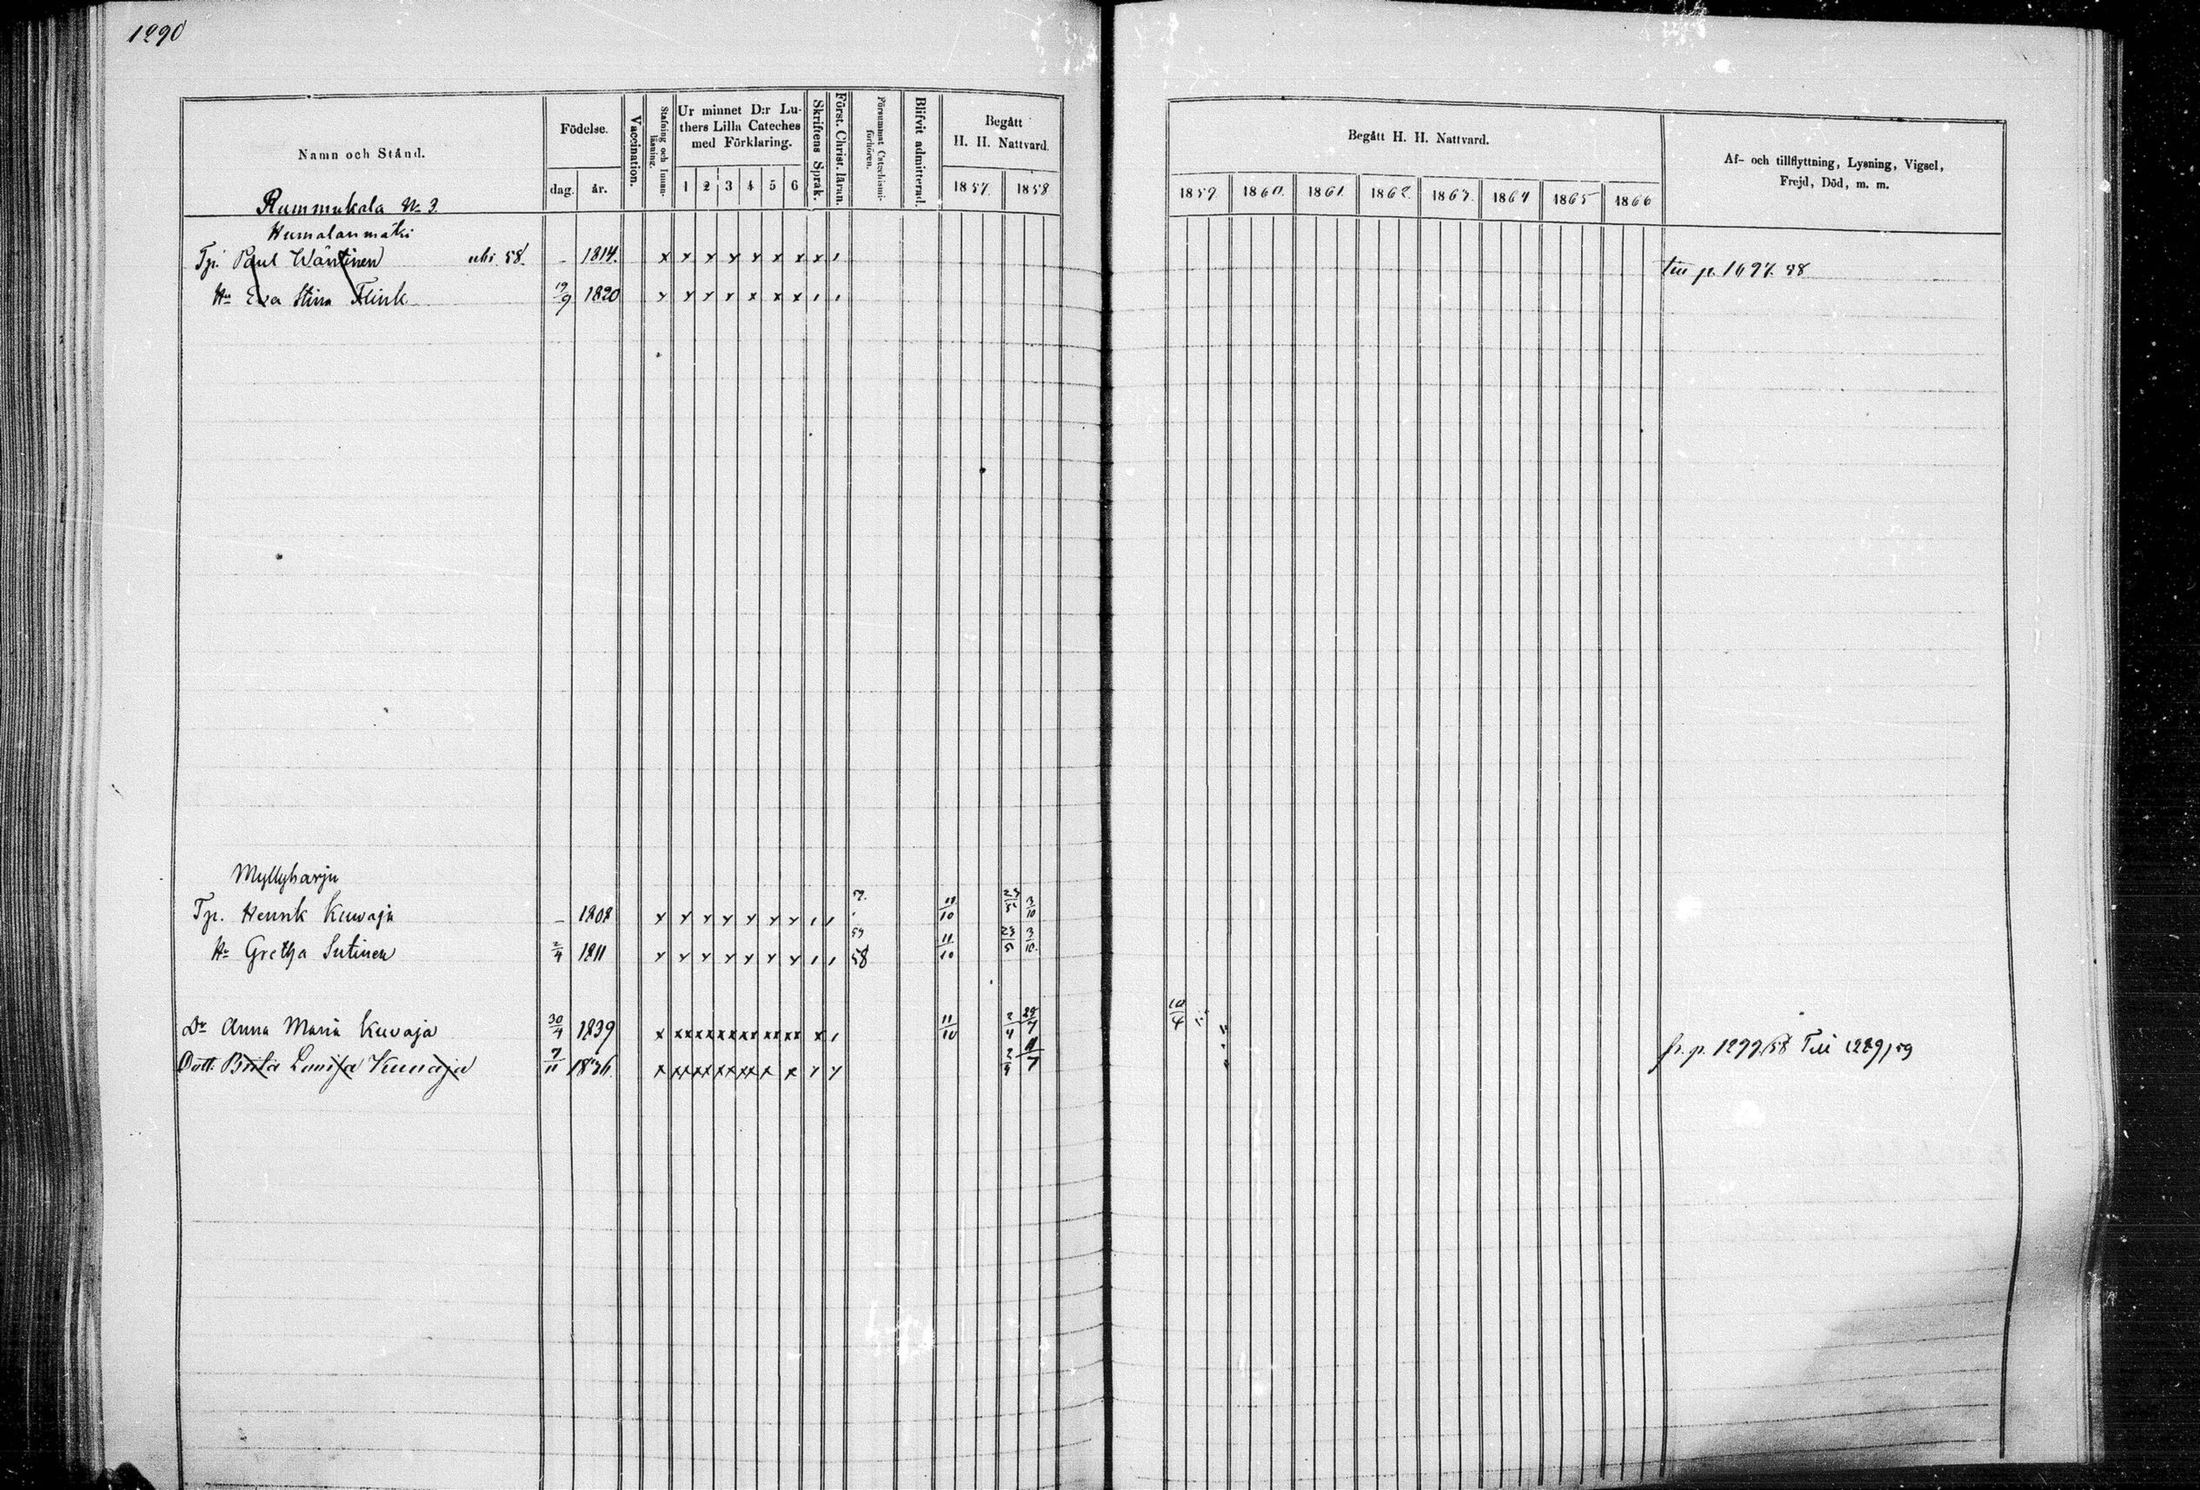 1290
Namn och Stånd.
Födelse.
dag. år.
Vaccination.
Stafning och Innanläsning.
Ur minnet D:r Luthers Lilla Cateches med Förklaring.
1 2 3 4 5 6
Skriftens Språk.
Först. Christ. läran.
Försummat Catechismi-förhören.
Blifvit admitterad.
Begått H. H. Nattvard.
1857. 1858
Begått H. H. Nattvard.
1859. 1860. 1861. 1862. 1863. 1864 1865 1866
Af- och tillflyttning, Lysning, Vigsel, Frejd, Död, m. m.
Rummukala No 3.
Humalanmäki
Tp. Paul Wäntinen 58. – 1814. x x x x x x x x ,
Hu Eva Stina Flink 19/9 1820 x x x x x x x , ,
Myllyharju
Tp. Henrik Kuvaja – 1808 x x x x x x x , , 11/10 23/5 3/10
Hu Gretha Sutinen 2/4 1811 x x x x x x x , , 59 58 11/10 23/5 3/10
Dr Anna Maria Kuvaja 30/4 1839 x xx xx xx xx xx xx x , 11/10 2/4 25/7 10/4
Dott. Brita Lovisa Kuvaja 7/11 1836 x xx xx xx xx x x x x
till p. 1697. 58
fr. p. 1299/58 Till 1289/59